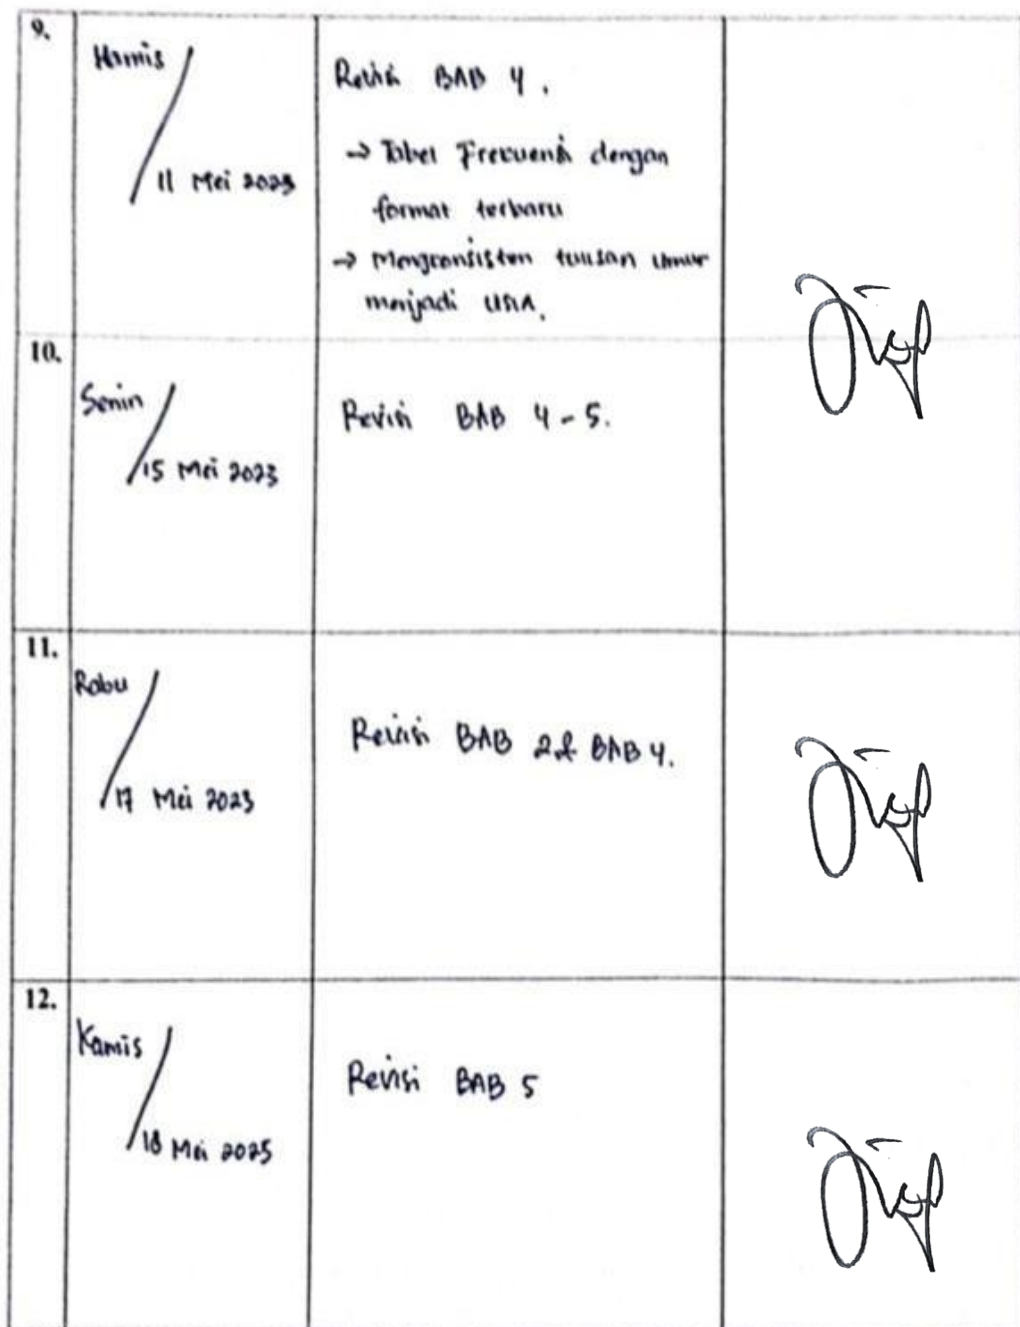 9.
Kamis
11 Mei 2023
Revisi BAB 4.
→ Tabel Frekuensi dengan
format terbaru
→ Mengkonsisten tulisan umur
menjadi USIA.
10.
Senin
15 Mei 2023
Revisi BAB 4 - 5.
11.
Rabu
17 Mei 2023
Revisi BAB 2 & BAB 4.
12.
Kamis
18 Mei 2023
Revisi BAB 5